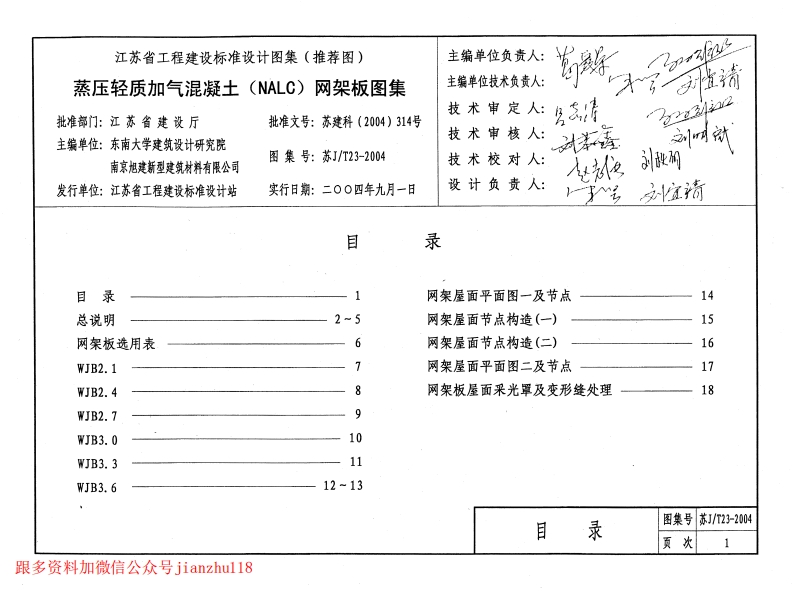 江苏省工程建设标准设计图集（推荐图）
蒸压轻质加气混凝土（NALC）网架板图集
批准部门：江苏省建设厅
批准文号：苏建科（2004）314号
主编单位：东南大学建筑设计研究院
南京旭建新型建筑材料有限公司
图集号：苏J/T23-2004
发行单位：江苏省工程建设标准设计站
实行日期：二〇〇四年九月一日
主编单位负责人：
主编单位技术负责人：
技术审定人：
技术审核人：
技术校对人：
设计负责人：
目 录
目 录 1
总说明 2~5
网架板选用表 6
WJB2.1 7
WJB2.4 8
WJB2.7 9
WJB3.0 10
WJB3.3 11
WJB3.6 12~13
网架屋面平面图一及节点 14
网架屋面节点构造(一) 15
网架屋面节点构造(二) 16
网架屋面平面图二及节点 17
网架板屋面采光罩及变形缝处理 18
目 录
图集号 苏J/T23-2004
页 次 1
跟多资料加微信公众号jianzhu118